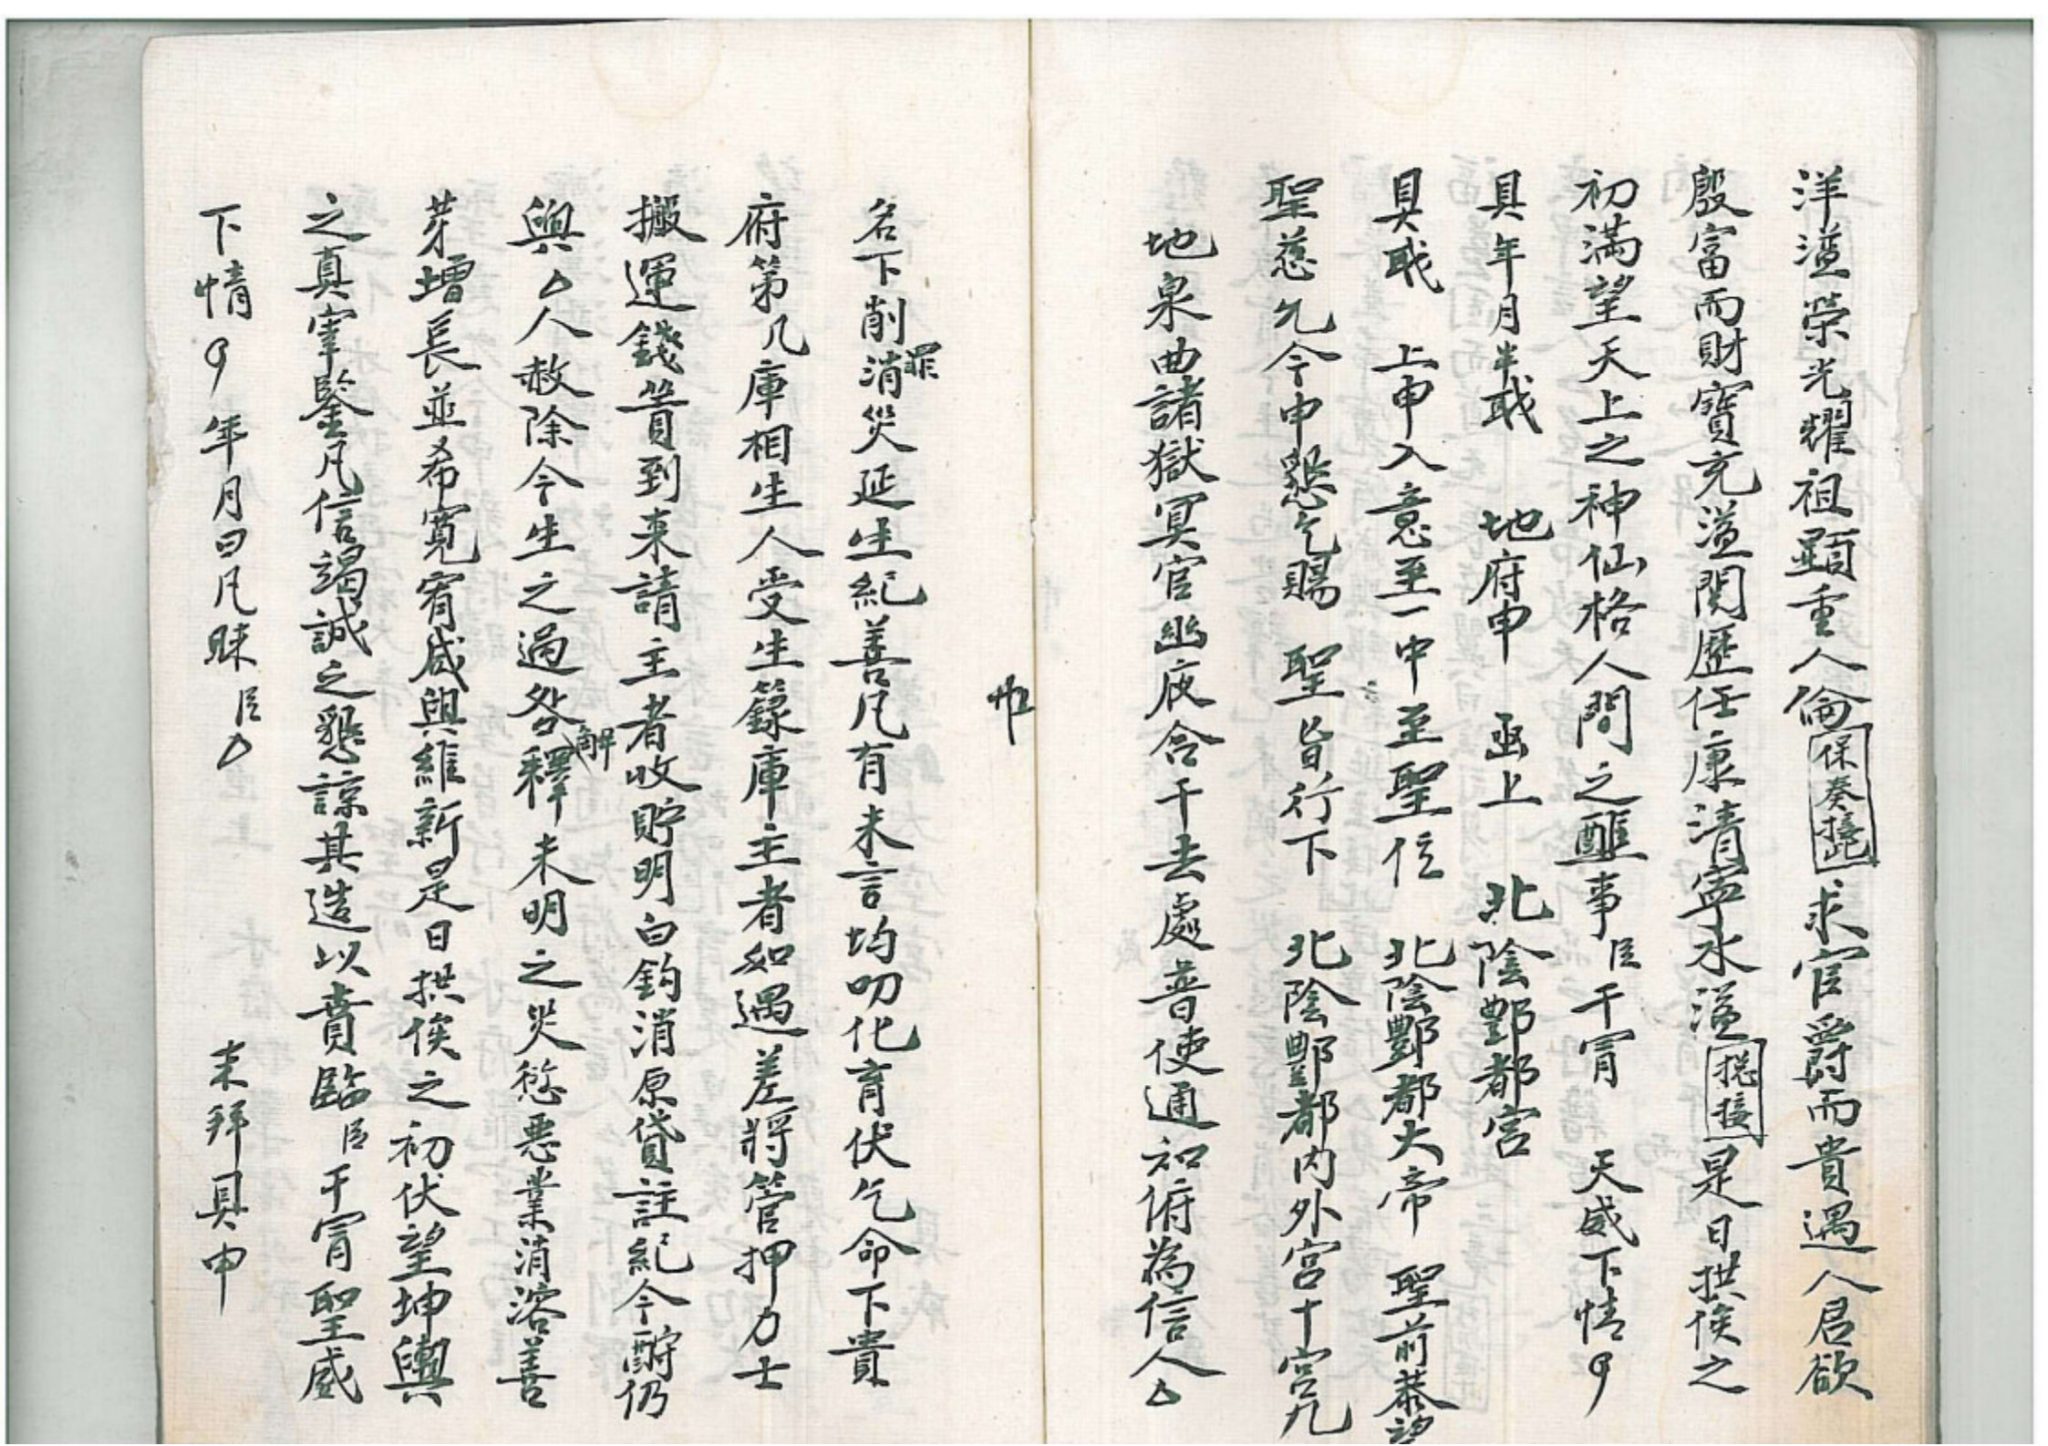 洋溢榮光耀祖顕重人倫保奏接此求官爵而貴遇人君欲
殷富而財寶充溢閱歷任康清寧水溢揔接是日拱俟之
初滿望天上之神仙格人間之醮事臣干冐　天威下情
具年月半戝　地府申　函上　北陰酆都宮
具戝　上申入意至一申至聖位　北陰酆都大帝　聖前恭望
聖慈允今申懇乞賜　聖旨行下　北陰酆都內外宮十宮九
地泉曲諸獄冥官幽夜含干去處普使通知俯為信人△
名下削罪消災延生紀善凡有未言均叨化育伏乞命下貴
府第几庫相生人受生籙庫主者如遇差將管押力士
搬運錢篢到来請主者收貯明白鈎消原貸註紀今酧仍
與△人赦除今生之過咎解釋未明之災愆惡業消溶善
芽增長並希寬宥咸與維新是日拱俟之初伏望坤輿
之真宰鑒凡信竭誠之懇諒其造以賁臨臣干冐聖威
下情　年月日凡昧臣△　末拜具申